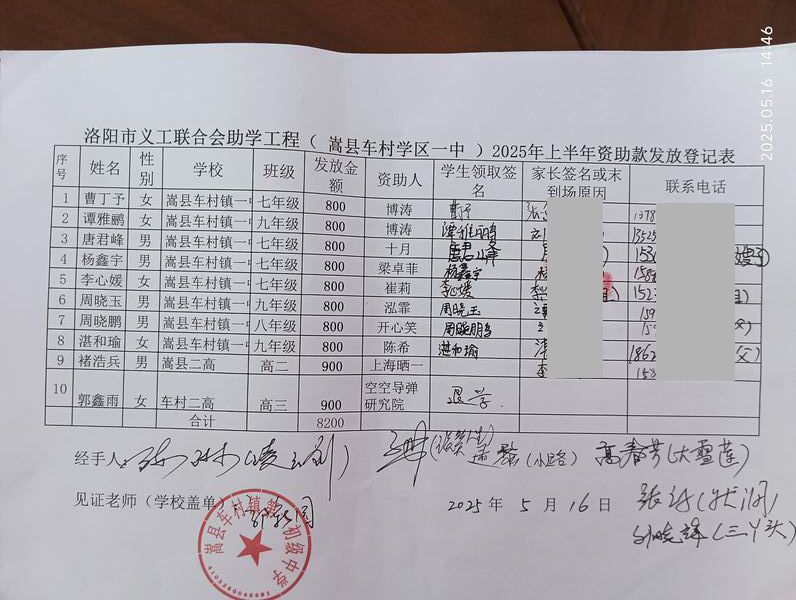 2025.05.16 14:46
洛阳市义工联合会助学工程（ 嵩县车村学区一中 ）2025年上半年资助款发放登记表
序号 姓名 性别 学校 班级 发放金额 资助人 学生领取签名 家长签名或未到场原因 联系电话
1 曹丁予 女 嵩县车村镇一 七年级 800 博涛 1378
2 谭雅鹂 女 嵩县车村镇一 九年级 800 博涛 谭雅鹂 13525
3 唐君峰 男 嵩县车村镇一 七年级 800 十月 唐君峰 153
4 杨鑫宇 男 嵩县车村镇一 七年级 800 梁卓菲 杨鑫宇 158
5 李心媛 女 嵩县车村镇一 七年级 800 崔莉 李心媛 李 152
6 周晓玉 男 嵩县车村镇一 九年级 800 泓霏 周晓玉 159
7 周晓鹏 男 嵩县车村镇一 八年级 800 开心笑 周晓鹏 15
8 湛和瑜 女 嵩县车村镇一 九年级 800 陈希 湛和瑜 1862 父）
9 褚浩兵 男 嵩县二高 高二 900 上海晒一 李 152
10 郭鑫雨 女 车村二高 高三 900 空空导弹研究院 退学.
合计 8200
经手人： （小路） 高春芳（大雪莲）
见证老师（学校盖单） 2025年 5 月 16 日
刘晓锋（三丫头）
嵩县车村镇第 初级中学